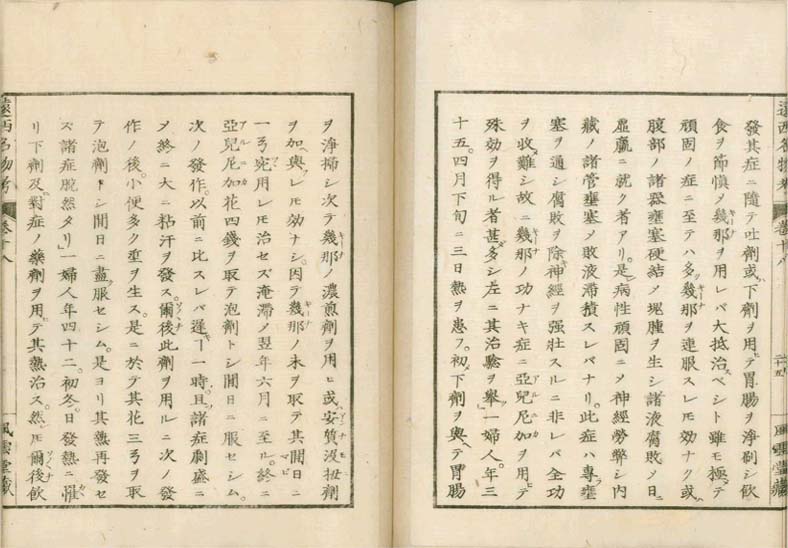 發其症ニ隨テ吐劑或ハ下劑ヲ用テ胃腸ヲ淨刷シ飮
食ヲ節愼メ幾那ヲ用レバ大抵治スベシト雖モ極テ
頑固ノ症ニ至テハ多ク幾那ヲ連服スレモ効ナク或ハ
腹部ノ諸器壅塞硬結メ塊腫ヲ生シ諸液腐敗メ日ニ
虚羸ニ就ク者アリ是病性頑固ニメ神經勞弊シ内
藏ノ諸管壅塞メ敗液滯積スレバナリ此症ハ專ラ壅
塞ヲ通シ腐敗ヲ除神經ヲ强壯スルニ非レバ全功
ヲ收メ難シ故ニ幾那ノ功ナキ症ニ亞兒尼加ヲ用テ
殊効ヲ得ル者甚多シ左ニ其治驗ヲ擧ク一婦人年三
十五四月下旬ニ三日熱ヲ患フ初メ下劑ヲ與ヘテ胃腸
ヲ淨掃シ次テ幾那ノ濃煎劑ヲ用ヒ或安質没扭劑
ヲ加ヘ與レモ効ナシ因テ幾那ノ末ヲ取テ其間日ニ
一弓宛用レモ治セズ淹滯メ翌年六月ニ至ル終ニ
亞兒尼加花四錢ヲ取テ泡劑トシ間日ニ服セシム
次ノ發作以前ニ比スレバ遲ヿ一時且諸症劇盛ニ
ヲ終ニ大ニ粘汗ヲ發ス爾後此劑ヲ用ルニ次ノ發
作ノ後小便多ク垽ヲ生ス是ニ於テ其花三弓ヲ取
テ泡劑トシ間日ニ盡ク服セシム是ヨリ其熱再發セ
ズ諸症脫然タリ一婦人年四十二初冬日發熱ニ罹
リ下劑及對症ノ藥劑ヲ用テ其熱治ス然モ爾後飮
遠西名物考
卷十八
風雲堂藏